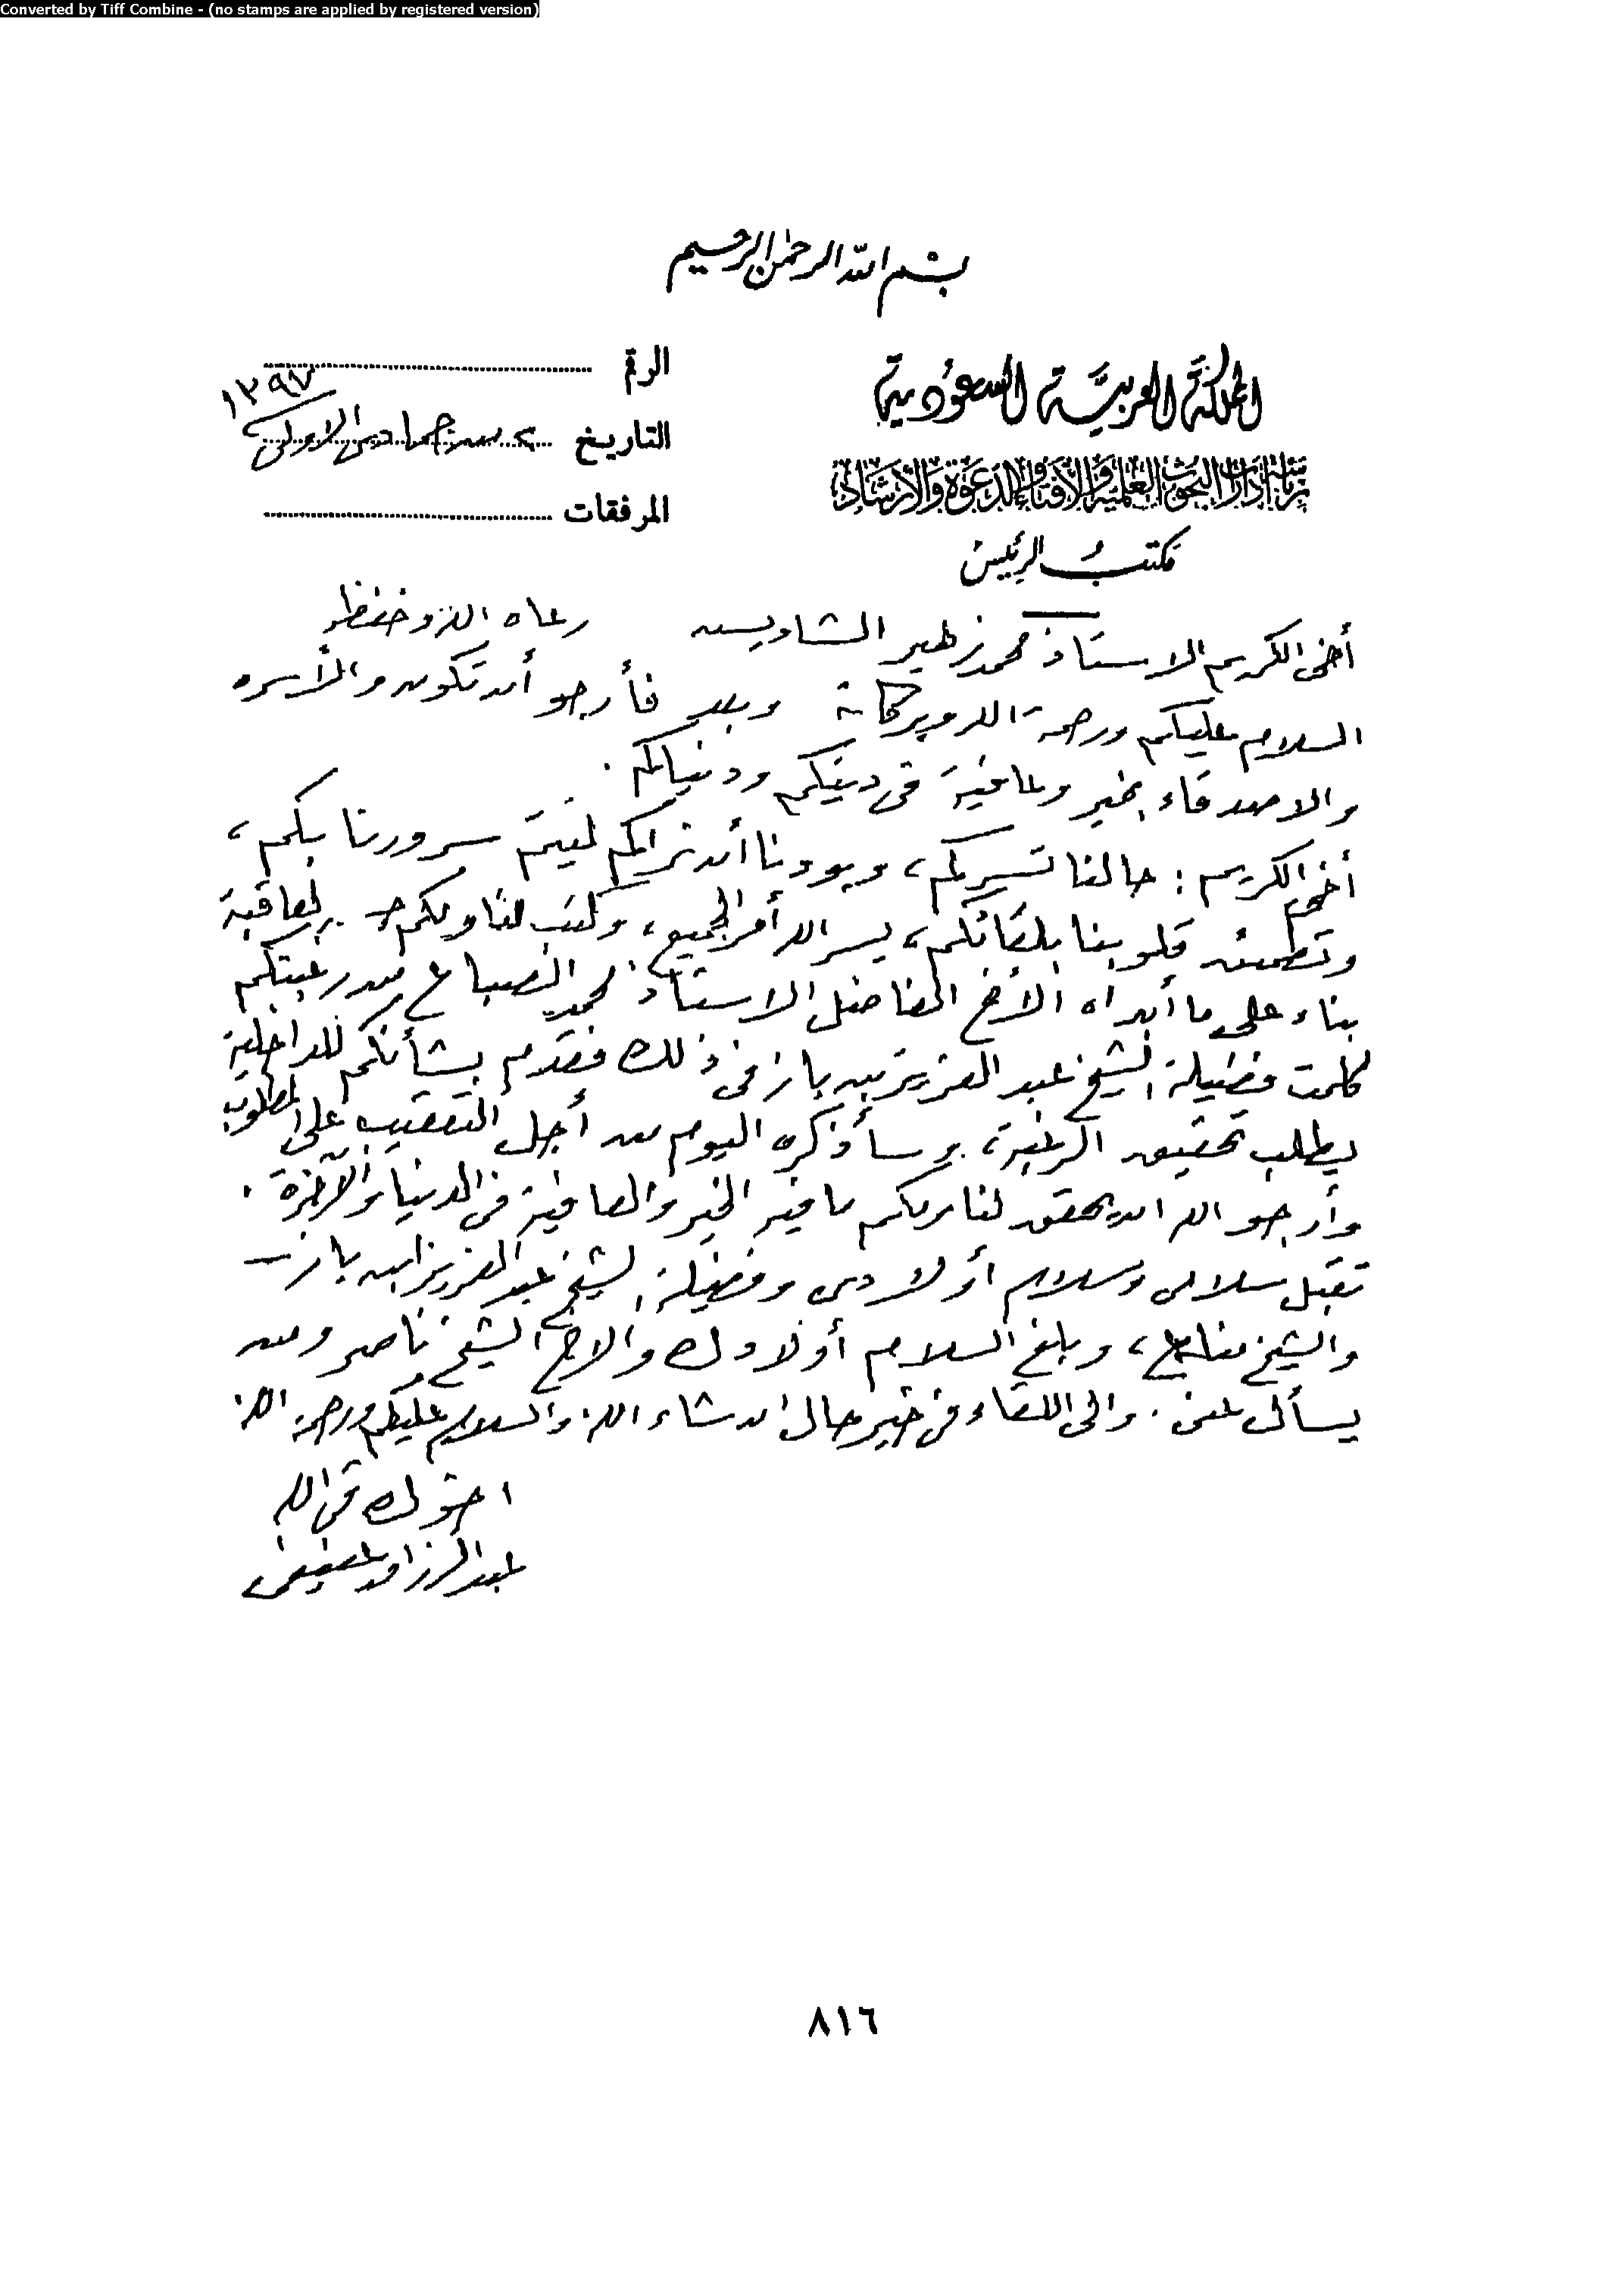 Converted by Tiff Combine - (no stamps are applied by registered version)
بسم الله الرحمن الرحيم
المملكة العربية السعودية
رئاسة إدارات البحوث العلمية والإفتاء والدعوة والإرشاد
مكتب الرئيس
الرقم
١٣٩٧
التاريخ ٢ من جمادى الاولى
المرفقات
أخى الكريم الاستاذ محمد زهير الشاويش رعاه الله وحفظه
السلام عليكم ورحمة الله وبركاته وبعد فأرجو أن تكون والأسره
والاصدقاء بخير وعافية فى دينكم ودنياكم .
أخى الكريم : حالنا تسركم ، وبودنا أن نراكم ليتم سرورنا بكم ،
وتطمئن قلوبنا بلقائكم ، يسر الله أمر الجميع ، وكتب لنا ولكم العاقبة
بناء على ما أبداه الأخ الفاضل الاستاذ محمد الصباغ من رغبتكم
كلمت فضيلة الشيخ عبد العزيز بن باز فى ذلك فقدم بشأنكم للداخلية
يطلب تحقيق الرغبة ، وسأذكره اليوم من أجل التعقيب على المطلوب
وأرجو الله ان يحقق لنا ولكم ما فيه الخير والعافية فى الدنيا والآخرة .
تقبل سلامى وسلام أولادى وفضيلة الشيخ عبد العزيز ابن باز
والشيخ مناع ، وبلغ السلام أولادك والاخ الشيخ ناصر ومن
يسأل عنى . والى اللقاء فى خير حال ان شاء الله والسلام عليكم ورحمة الله
اخوك فى الله
عبد الرزاق عفيفى
٨١٦